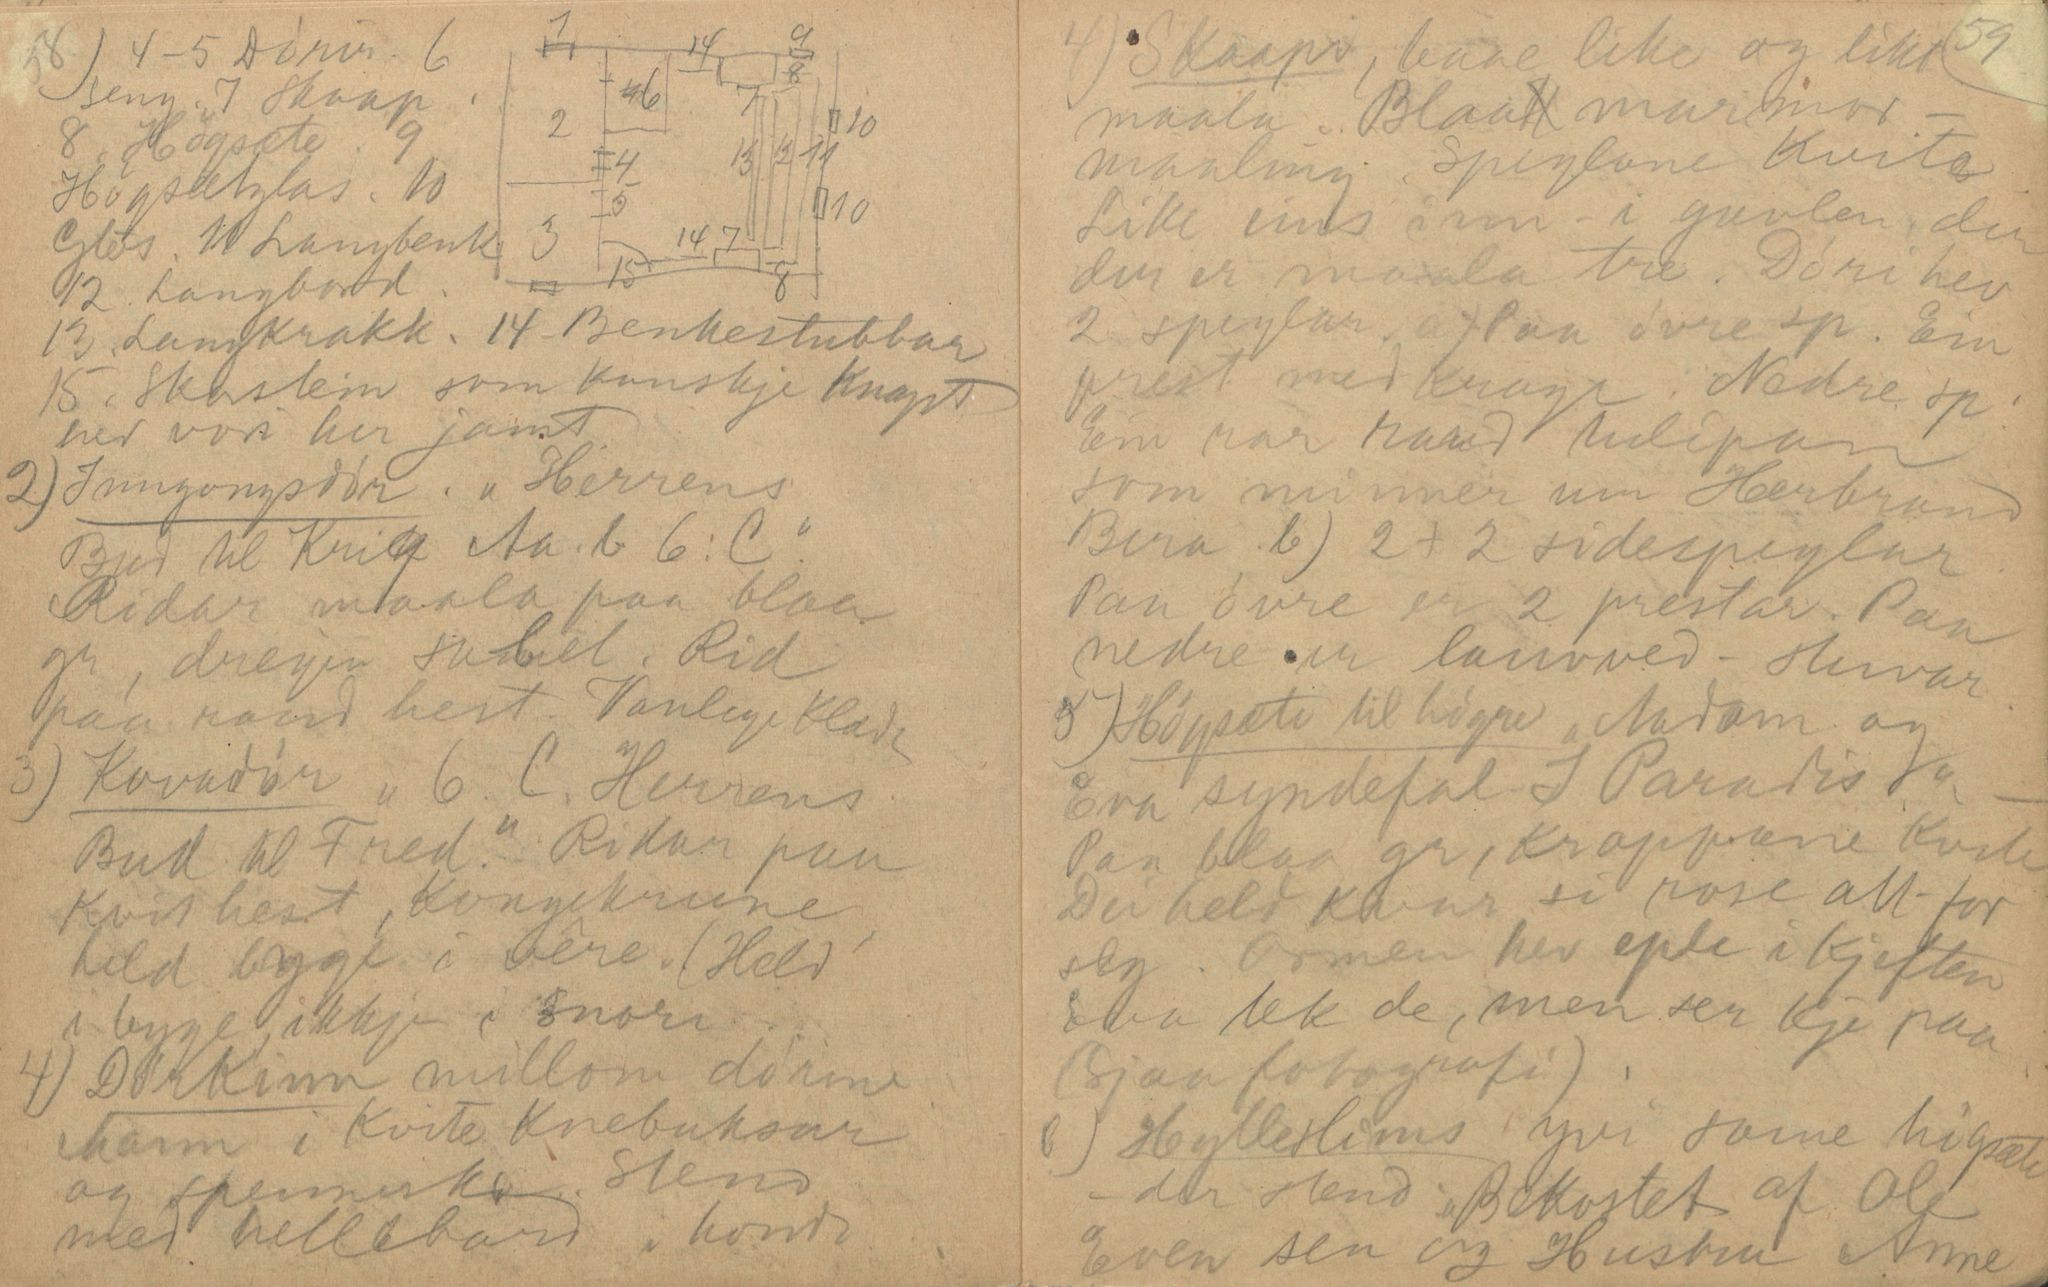 58
) 4-5 Dörir. 6
seng. 7 Skaap.
8. Högsæte. 9
Högsætglas. 10
Glas. 11 Langbenk
12. Langbord.
13. Langkrakk. 14- Benkestubbar
15. Skorstein som kanskje knapt
hev vori her jamt
2) Inngongsdör. "Herrens
Bud til Krig Aa. b 6: C".
Ridar maala paa blaa
gr, dregjen sabel. Rid
paa raud hest. Vanlege klæde
3) Kovadör "6. C. Herrens
Bud til Fred." Ridar paa
kvit hest, Kongekrune,
held bygg i vere. (Held
i bygg, ikkje i snore
4) Dörkinn millom dörine
Mann i kvite knebuksur
og spennesko. Stend
med hellebard i hondi
1
14
9
8
6
7
2
10
4
13
12
11
5
10
3
14
7
15
8
59
4) Skaapi, baae like og likt
maala. Blaa marmor-
maaling. Speglane kvite
Like eins inn-i gavlen, der
der er maala tre. Döri hev
2 speglar. a) Paa övre sp. Ein
prest med krage. Nedre sp.
Ein rar raud tulipan
som minner um Herbrand
Bera. b) 2+2 sidespeglar
Paa övre er 2 prestar. Paa
nedre er lauvved-
5) Högsæte til högre "Aadam og
Eva syndefal I Paradis
Paa blaa gr, kroppane kvite
Dei held kvar si rose att-for
seg. Ormen hev eple i kjeften
Eva tek de, men ser kje paa
(Sjaa fotografi).
6) Hyllelims yvi same högsæte
- der stend "Bekostet af Ole
Even sen og Hustru Anne